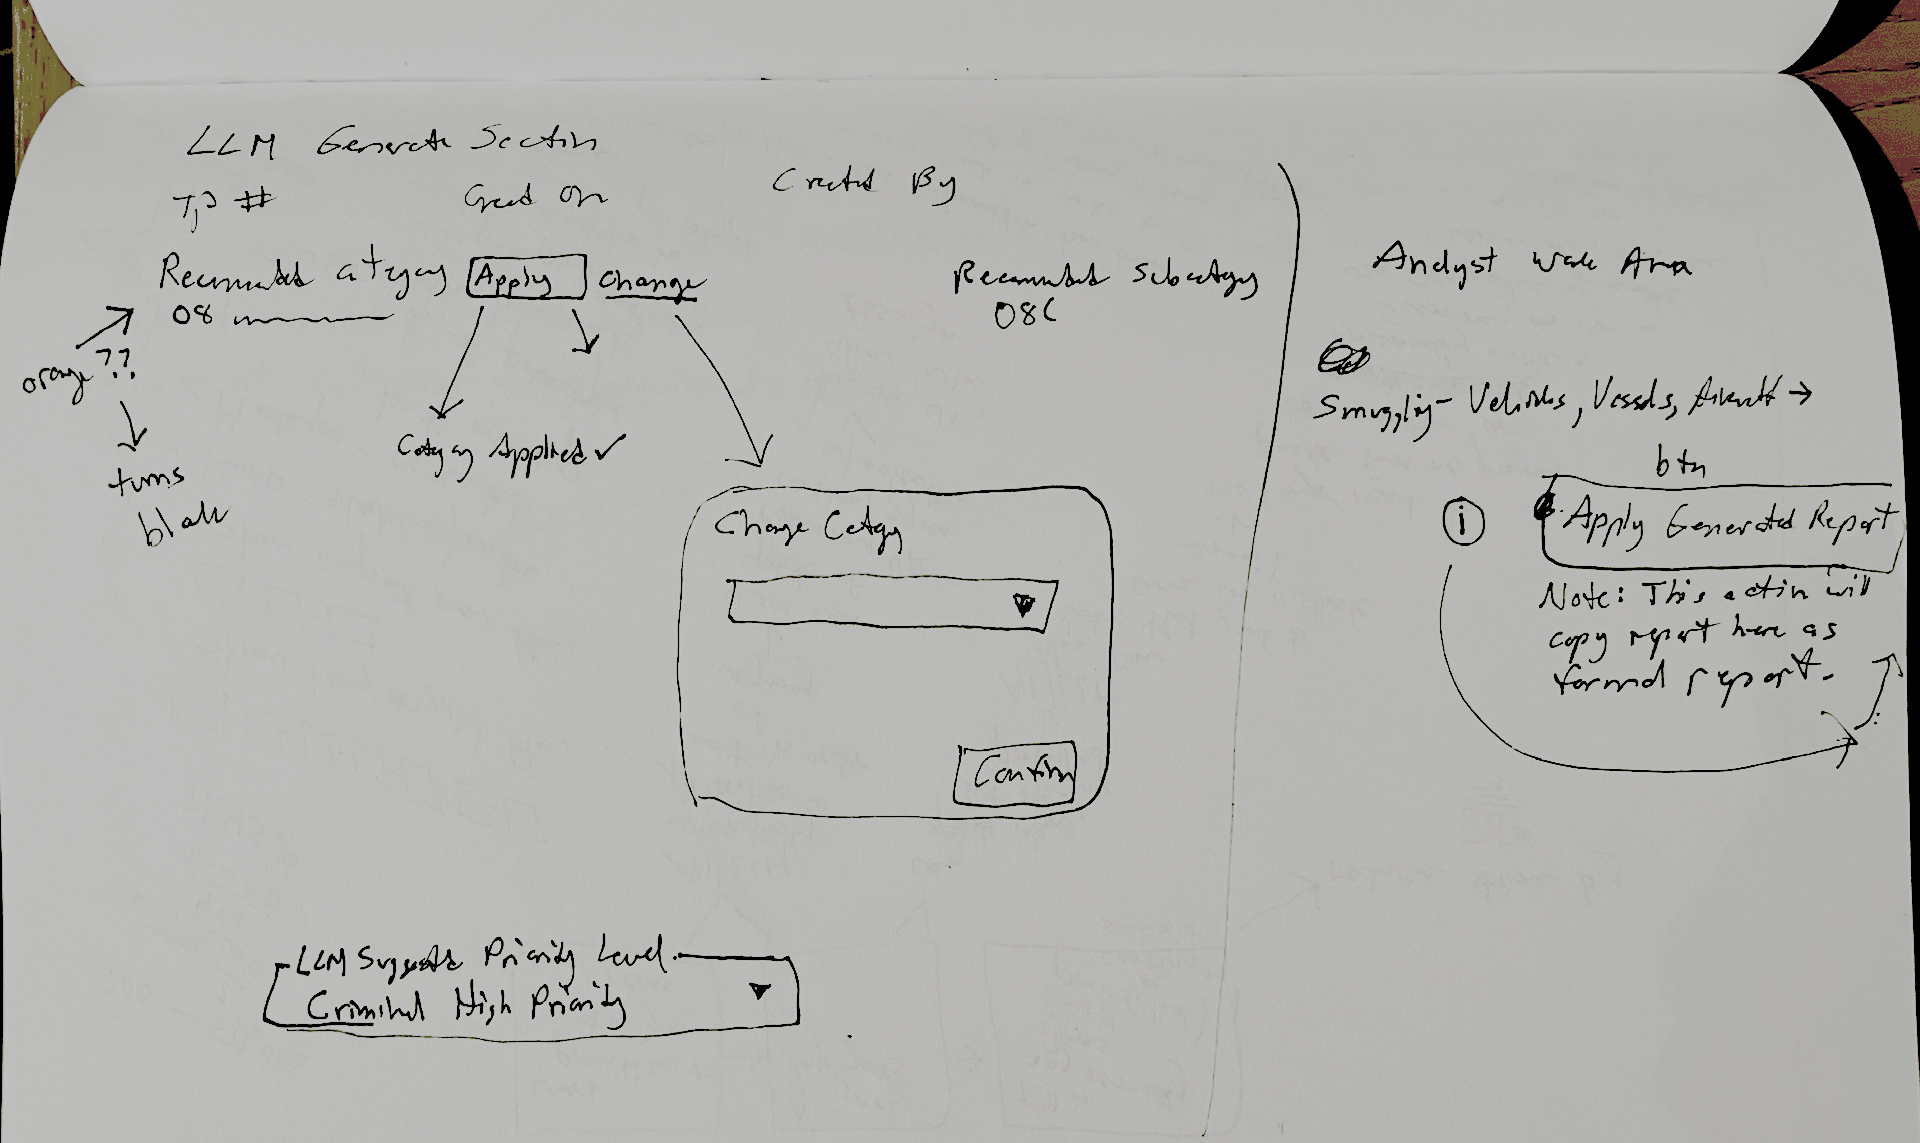 LLM Generate Section
Tip #
Created On
Created By
Recommended category
Apply
change
08
Recommended Subcategory
08C
orange??
turns
black
Category Applied ✓
Change Category
▼
Confirm
LLM Suggested Priority Level
Criminal High Priority ▼
Analyst Work Area
Smuggling - Vehicles, Vessels, Aircraft →
btn
i
Apply Generated Report
Note: This action will
copy report here as
formal report.